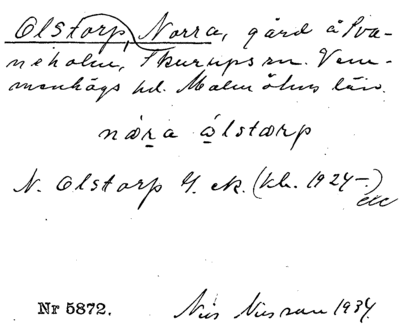 Olstorp, Norra, gård å Sva-
neholm, Skurups sn. Vem-
menhögs hd. Malmöhus län.
næra ålstorp
N. Olstorp G. ek. (kb. 1924-)
Nr 5872. Nils Nilsson 1934.